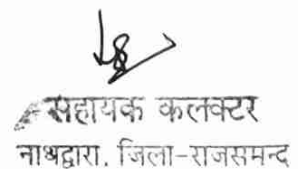 सहायक कलक्टर
नाथद्वारा, जिला-राजसमन्द